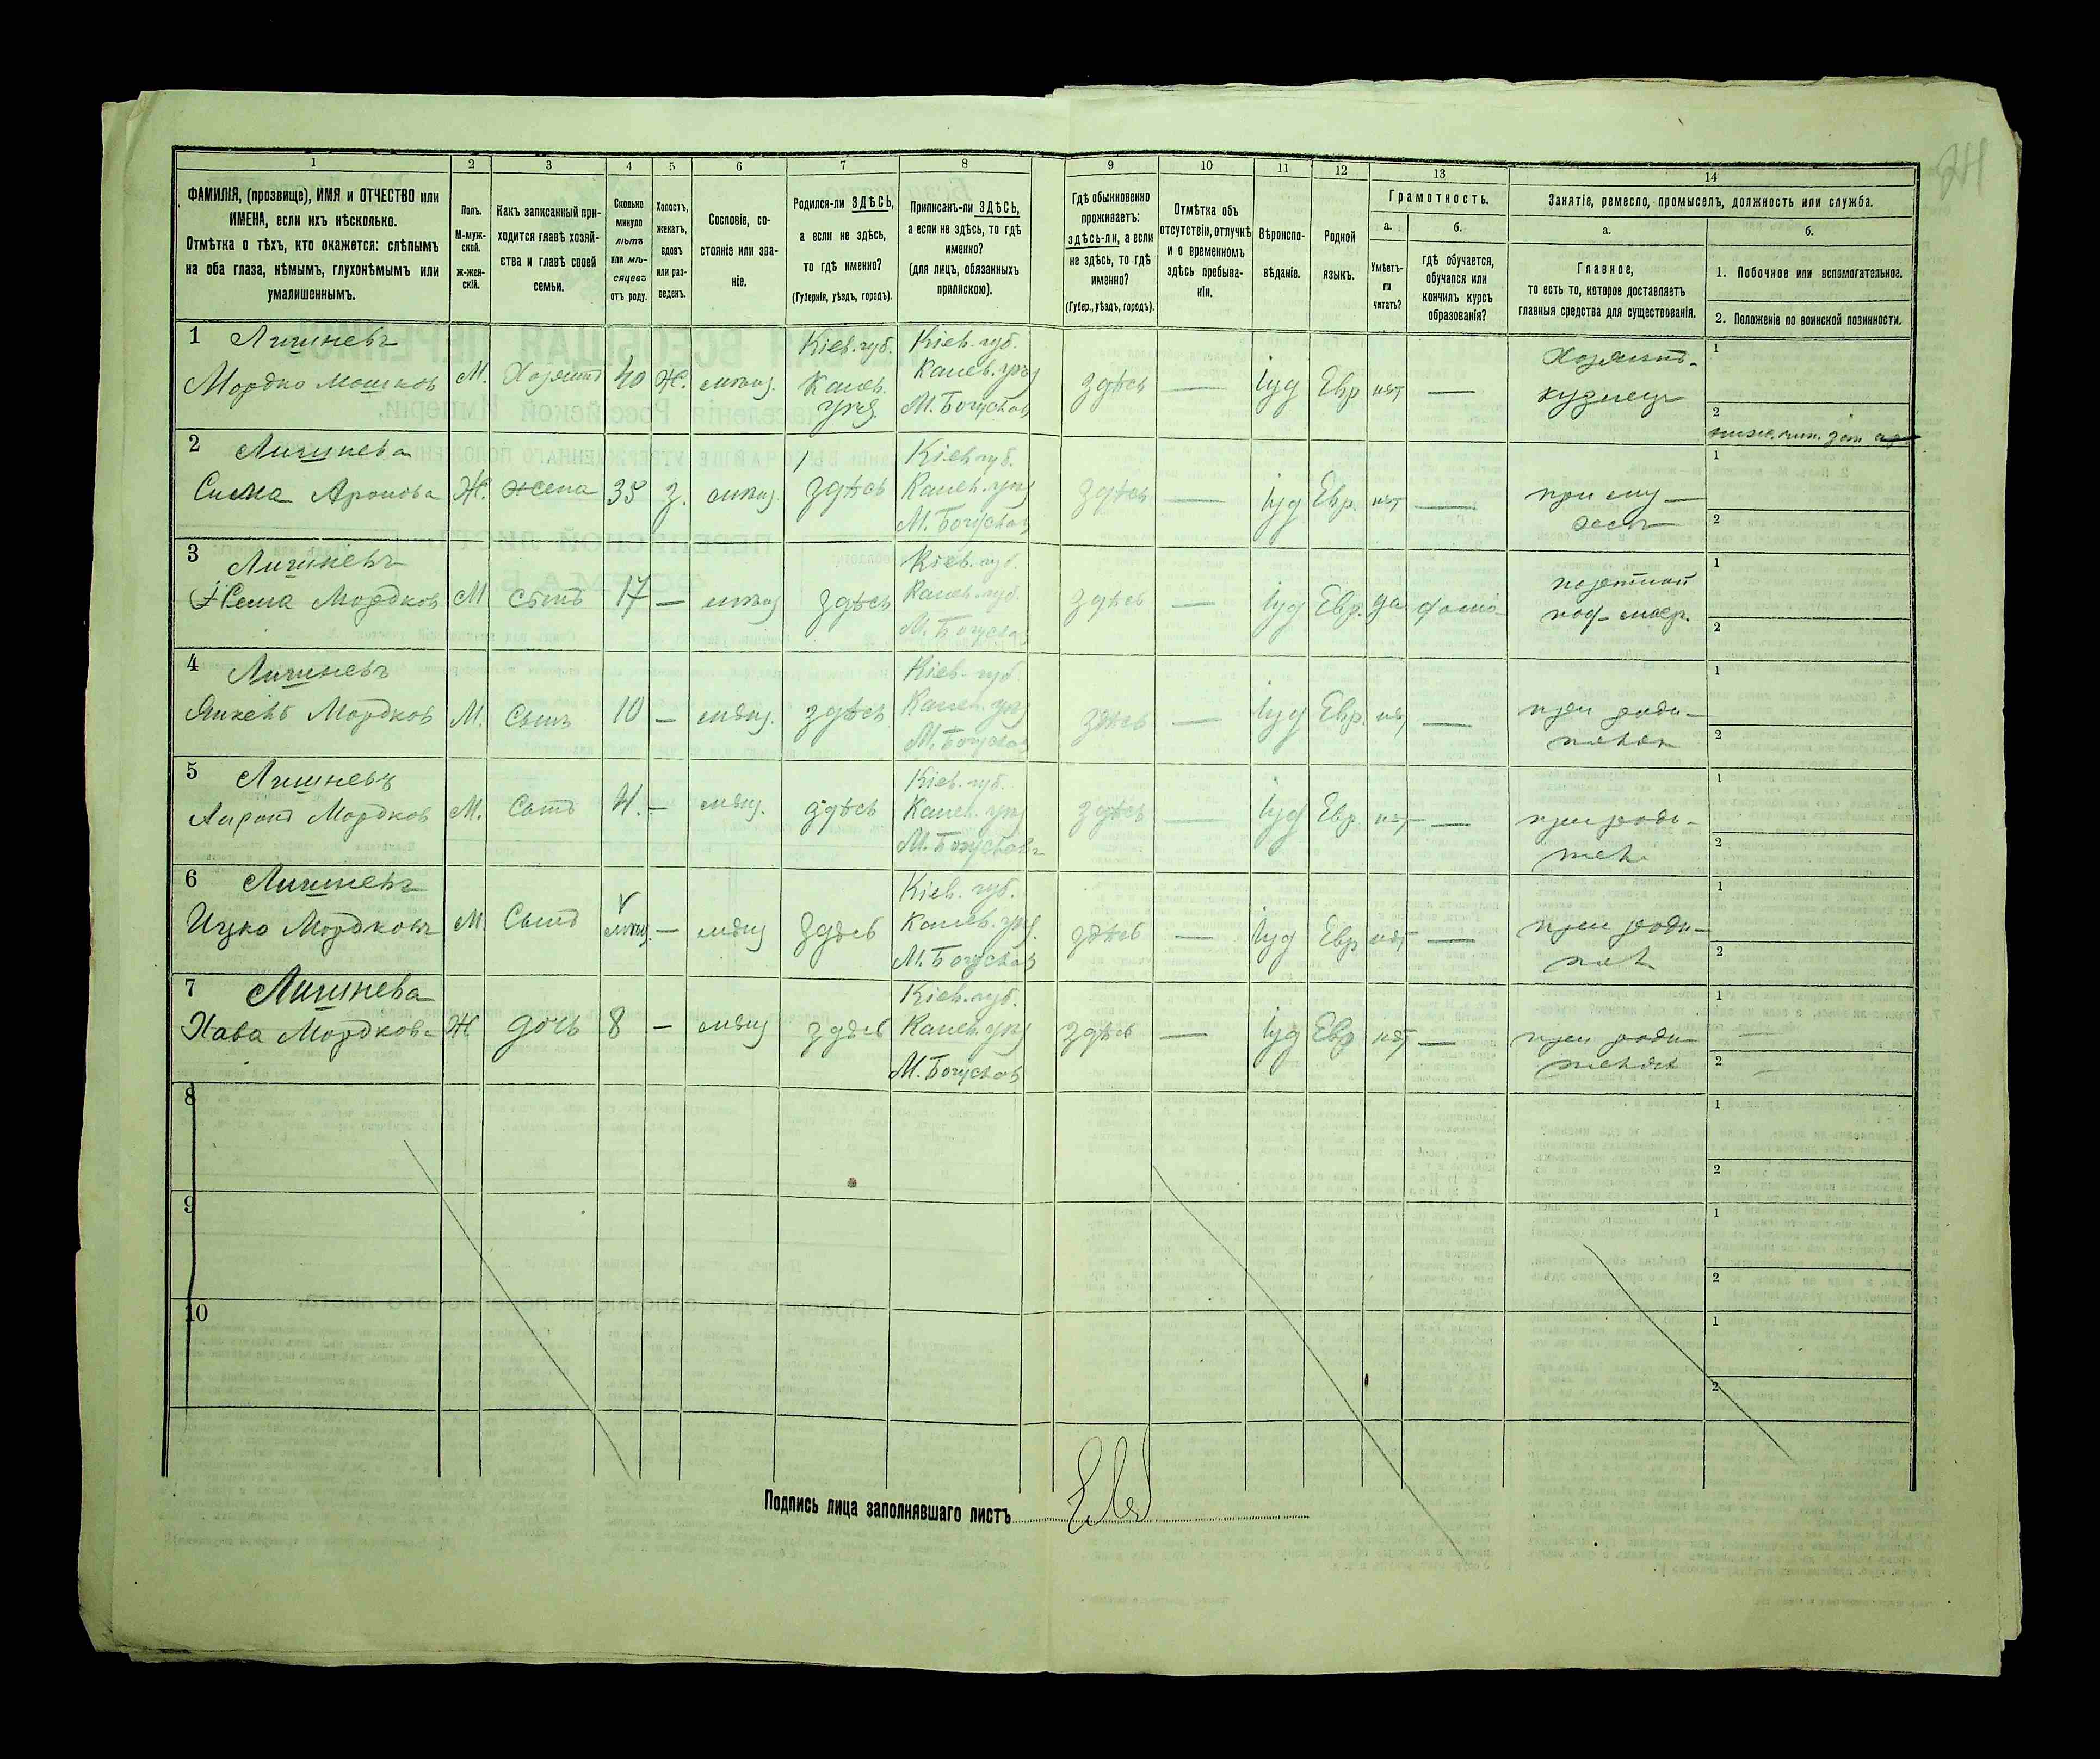 24
1 2 3 4 5 6 7 8 9 10 11 12 13 14
ФАМИЛІЯ, (прозвище), ИМЯ и ОТЧЕСТВО или
ИМЕНА, если ихъ нѣсколько.
Отмѣтка о тѣхъ, кто окажется: слѣпымъ
на оба глаза, нѣмымъ, глухонѣмымъ или
умалишеннымъ.
Полъ.
М-муж-
ской.
ж-жен-
скій.
Какъ записанный при-
ходится главѣ хозяй-
ства и главѣ своей
семьи.
Сколько
минуло
лѣтъ
или мѣ-
сяцевъ
отъ роду.
Холостъ,
женатъ,
вдовъ
или раз-
веденъ.
Сословіе, со-
стояніе или зва-
ніе.
Родился-ли ЗДѢСЬ,
а если не здѣсь,
то гдѣ именно?
(Губернія, уѣздъ, городъ).
Приписанъ-ли ЗДѢСЬ,
а если не здѣсь, то гдѣ
именно?
(для лицъ, обязанныхъ
припискою).
Гдѣ обыкновенно
проживаетъ:
здѣсь-ли, а если
не здѣсь, то гдѣ
именно?
(Губер., уѣздъ, городъ).
Отмѣтка объ
отсутствіи, отлучкѣ
и о временномъ
здѣсь пребыва-
ніи.
Вѣроиспо-
вѣданіе.
Родной
языкъ.
Грамотность.
а.
Умѣетъ-
ли
читать?
б.
гдѣ обучается,
обучался или
кончилъ курсъ
образованія?
Занятіе, ремесло, промыселъ, должность или служба.
а.
Главное,
то есть то, которое доставляетъ
главныя средства для существованія.
б.
1. Побочное или вспомогательное.
2. Положеніе по воинской повинности.
1 Лишневъ
Мордко Мошков М. Хозяинъ 40 Ж. мѣщ.
Кіев. губ.
Канев.
уѣз.
Кіев. губ.
Канев. уѣз
М. Богуслав
здѣсь — Іуд Евр нѣт —
Хозяинъ-
кузнецъ
1
2
2 Лишнева
Сисма Аронова Ж. жена 35 з. мѣщ. здѣсь
Кіев губ.
Канев. уѣз
М. Богуслав
здѣсь — Іуд Евр. нѣт —
при му-
жѣ
1
2
3 Лишневъ
Мордков М сынъ 17 — мѣщ здѣсь
Кіев. губ.
Канев. губ.
М. Богуслав
здѣсь — Іуд Евр. да
1
2
4 Лишневъ
Янкель Мордков М. Сынъ 10 — мѣщ. здѣсь
Кіев. губ.
Канев. уѣз
М. Богуслав
здѣсь — Іуд Евр. нѣт —
при роди-
телях
1
2
5 Лишневъ
Ааронъ Мордков М. Сынъ 4. — мѣщ. здѣсь
Кіев. губ.
Канев. уѣз
М. Богуславъ
здѣсь — Іуд Евр. нѣт —
при роди-
тел.
1
2
6 Лишневъ
Ицко Мордковъ М Сынъ — мѣщ здѣсь
Кіев. губ.
Канев. уѣз.
М. Богуслав
здѣсь — Іуд Евр нѣт —
при роди-
тел
1
2
7 Лишнева
Хава Мордкова Ж. дочь 8 — мѣщ здѣсь
Кіев. губ.
Канев. уѣз
М. Богуслав
здѣсь — Іуд Евр нѣт —
при роди-
телях
1 —
2 —
8
1
2
9
1
2
10
1
2
Подпись лица заполнявшаго листъ